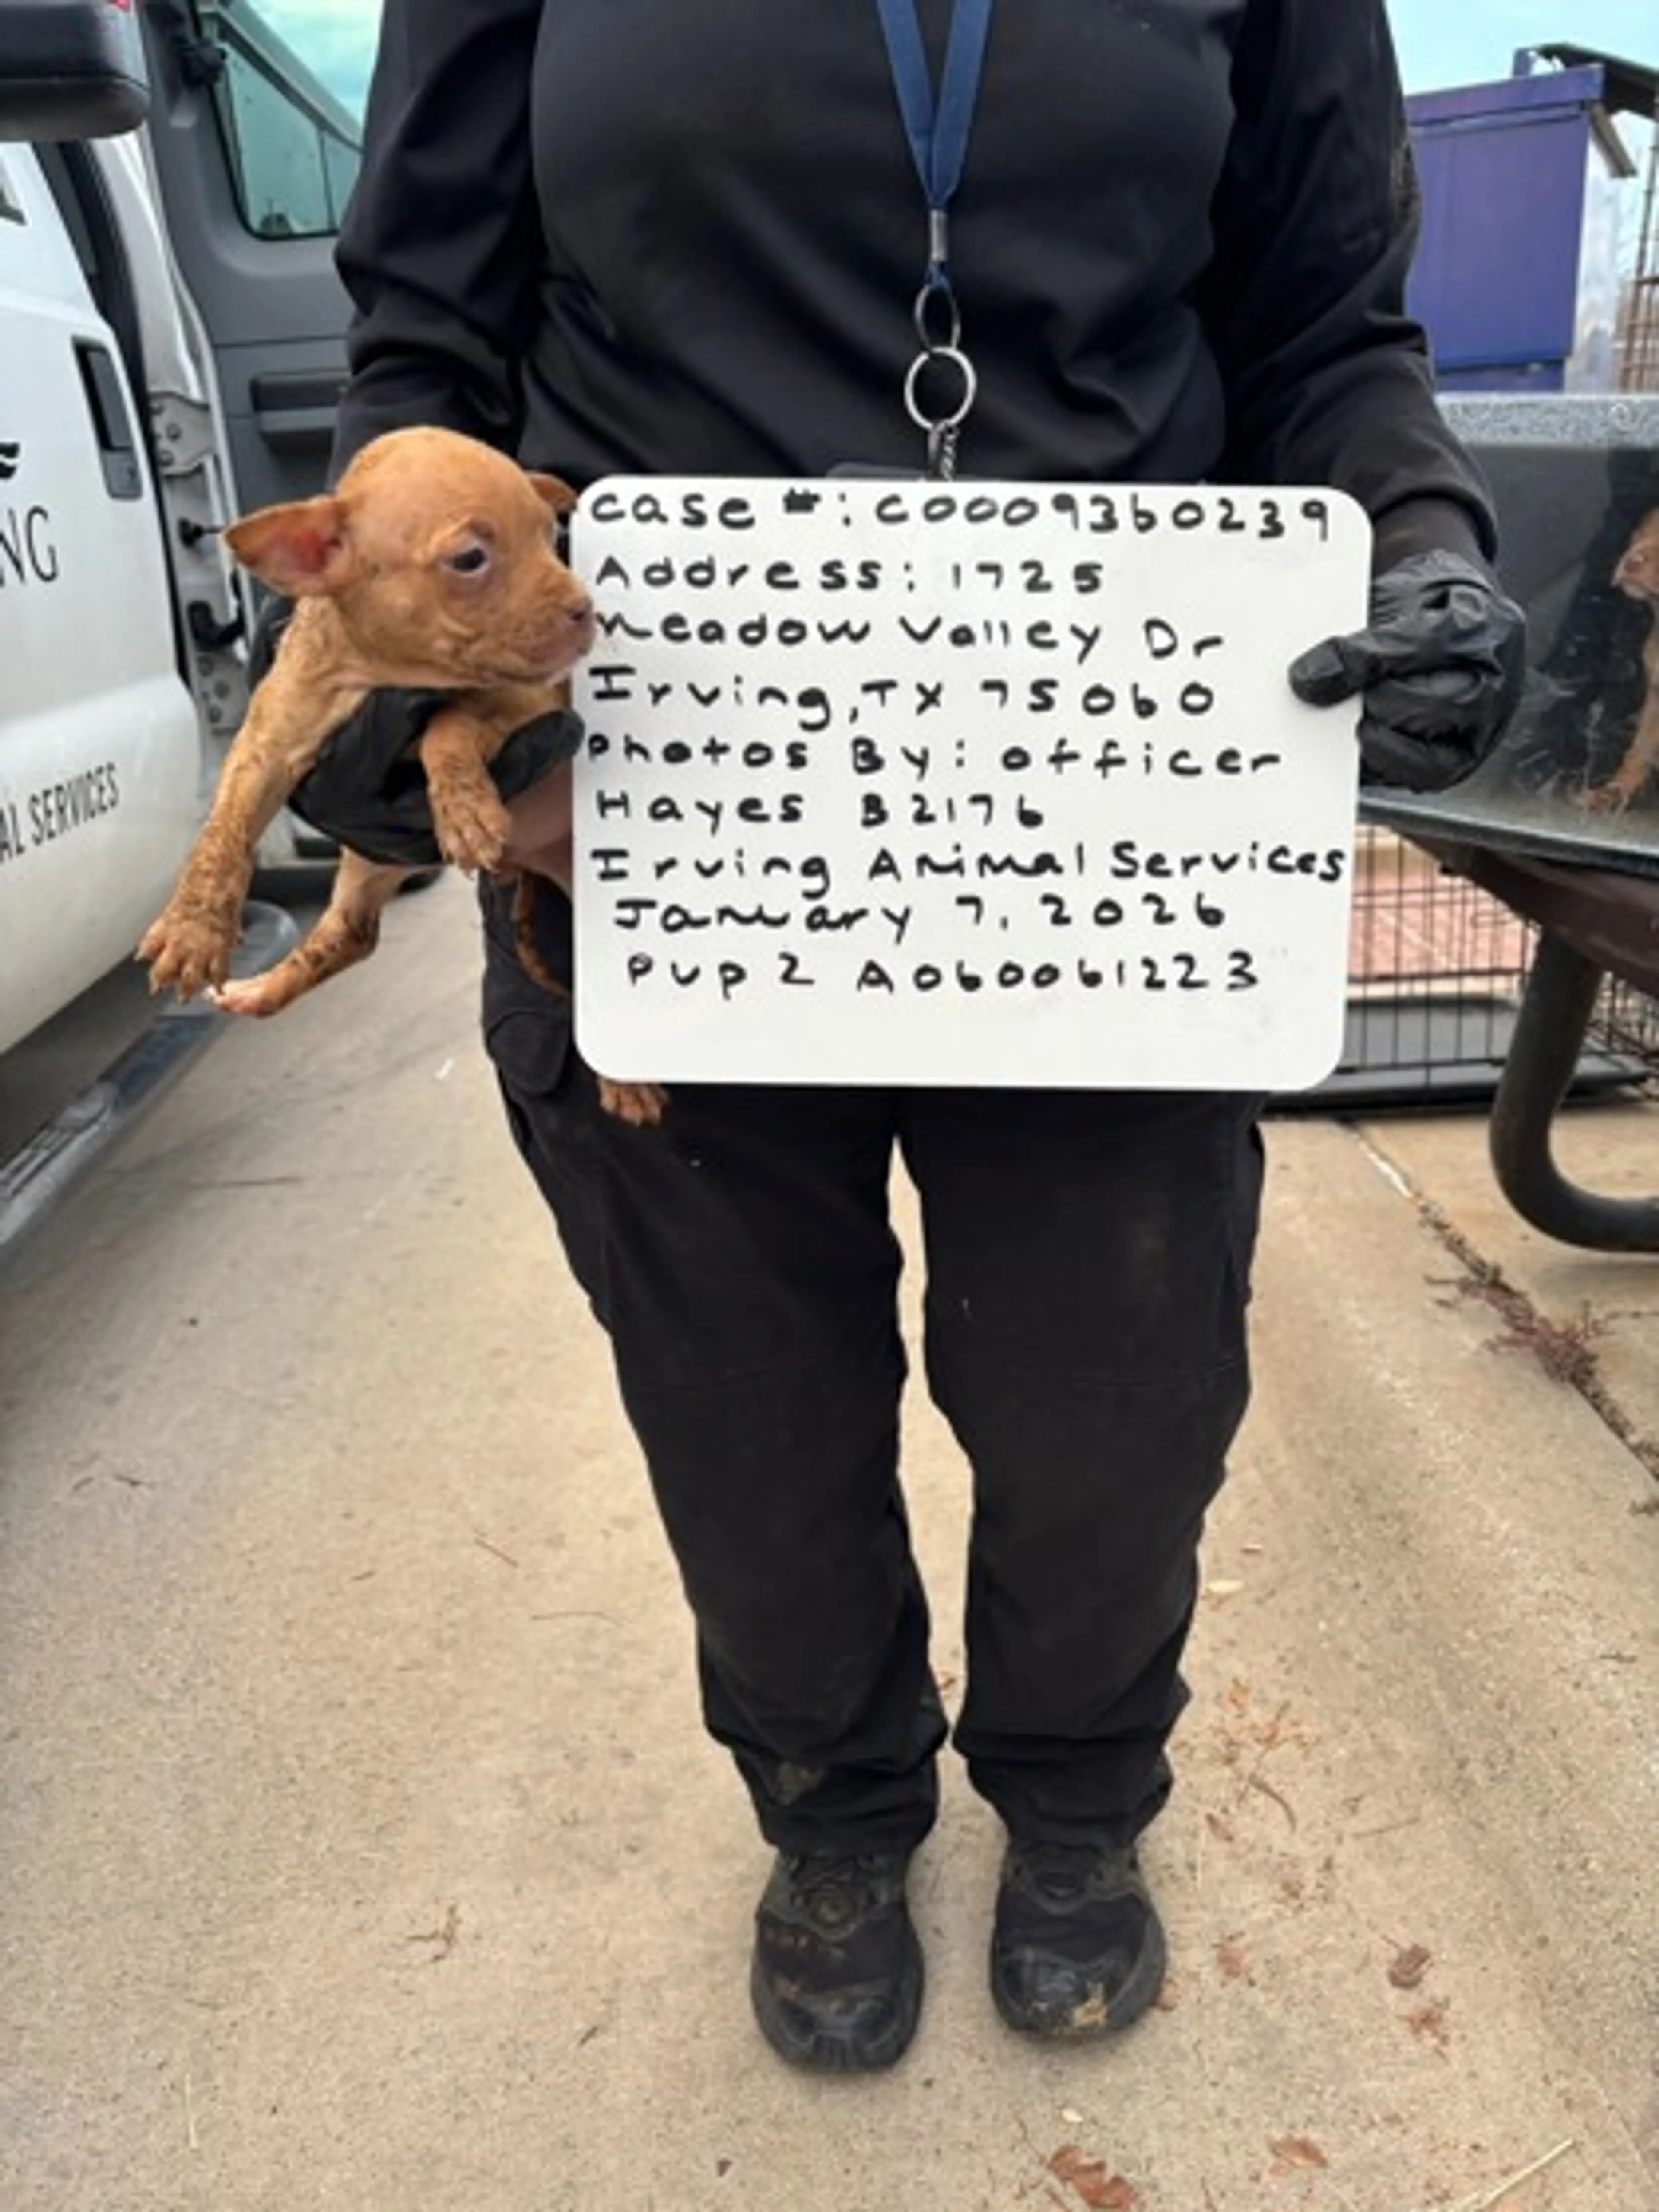 NG
AL SERVICES
case #: C0009360239
Address: 1725
Meadow Valley Dr
Irving, TX 75060
photos By: officer
Hayes B2176
Irving Animal Services
January 7, 2026
Pup 2 A060061223